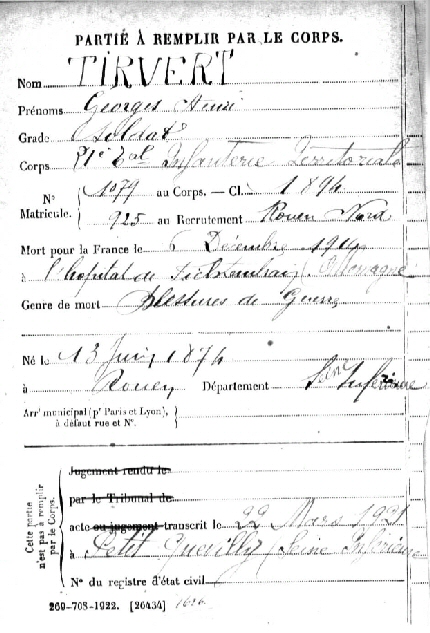 PARTIE À REMPLIR PAR LE CORPS.
Nom TIRVERT
Prénoms Georges Henri
Grade Soldat
Corps 21e Tal Infanterie Territoriale
N° Matricule. { 1079 au Corps. — Cl. 1894
925 au Recrutement Rouen Nord
Mort pour la France le 6 Décembre 1914
à l'hopital de Allemagne
Genre de mort Blessures de Guerre
Né le 13 Juin 1874
à Rouen Département Seine Inférieure
Arrt municipal (pr Paris et Lyon), à défaut rue et N°. {
Cette partie n'est pas à remplir par le Corps. {
Jugement rendu le
par le Tribunal de
acte ou jugement transcrit le 22 Mars 1921
à Petit Quevilly (Seine Inférieure
N° du registre d'état civil
269-708-1922. [26434]